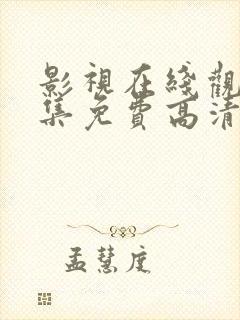 影視在綫觀
集免費高清
孟慧庭